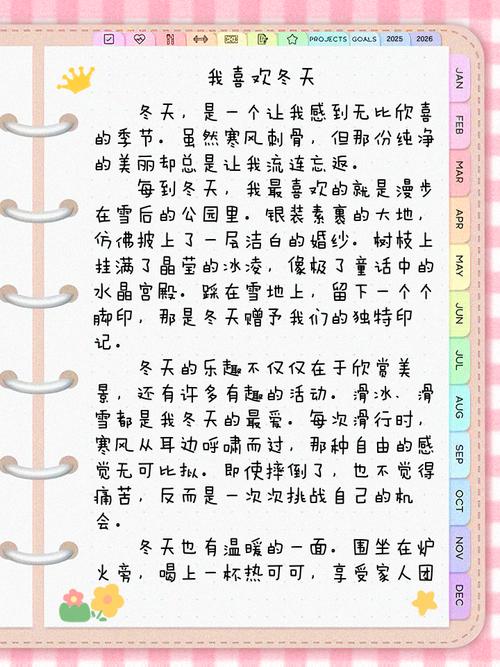 PROJECTS GOALS 2025 2026
我喜欢冬天
冬天，是一个让我感到无比欣喜
的季节。虽然寒风刺骨，但那份纯净
的美丽却总是让我流连忘返。
每到冬天，我最喜欢的就是漫步
在雪后的公园里。银装素裹的大地，
仿佛披上了一层洁白的婚纱。树枝上
挂满了晶莹的冰凌，像极了童话中的
水晶宫殿。踩在雪地上，留下一个个
脚印，那是冬天赠予我们的独特印
记。
冬天的乐趣不仅仅在于欣赏美
景，还有许多有趣的活动。滑冰、滑
雪都是我冬天的最爱。每次滑行时，
寒风从耳边呼啸而过，那种自由的感
觉无可比拟。即使摔倒了，也不觉得
痛苦，反而是一次次挑战自己的机
会。
冬天也有温暖的一面。围坐在炉
火旁，喝上一杯热可可，享受家人团
JAN
FEB
MAR
APR
MAY
JUN
JUL
AUG
SEP
OCT
NOV
DEC